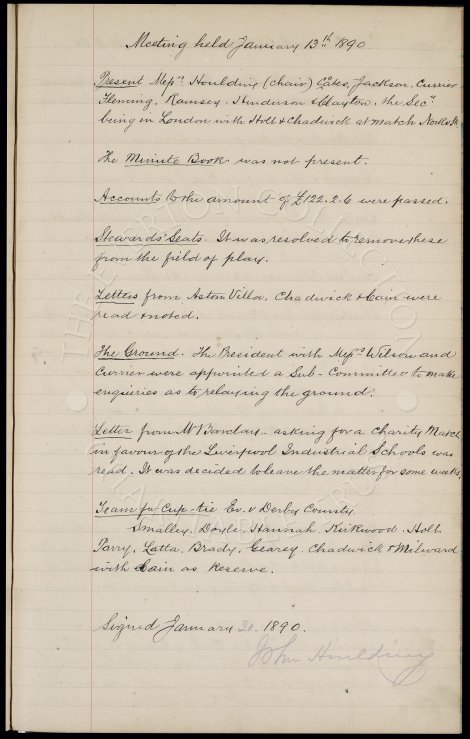 Meeting held January 13th 1890.
Present Messrs Houlding (Chair) Coates, Jackson, Currier
Fleming, Ramsey, Henderson & Clayton, the Secy
being in London with Holt & Chadwick at match North v
The Minute Book was not present.
Accounts to the amount of £122.2.6 were passed.
Stewards' Seats. It was resolved to remove these
from the field of play.
Letters from Aston Villa, Chadwick & Cain were
read & noted.
The Ground. The President with Messrs Wilson and
Currier were appointed a Sub-Committee to make
enquiries as to relaying the ground.
Letter from Mr Barclay asking for a Charity Match
in favour of the Liverpool Industrial Schools was
read. It was decided to leave the matter for some weeks.
Team for Cup-tie Ev. v Derby County
Smalley, Doyle, Hannah, Kirkwood, Holt
Parry, Latta, Brady, Geary, Chadwick & Milward
with Cain as Reserve.
Signed January 20 1890.
John Houlding
THE EVERTON COLLECTION
CHARITABLE TRUST